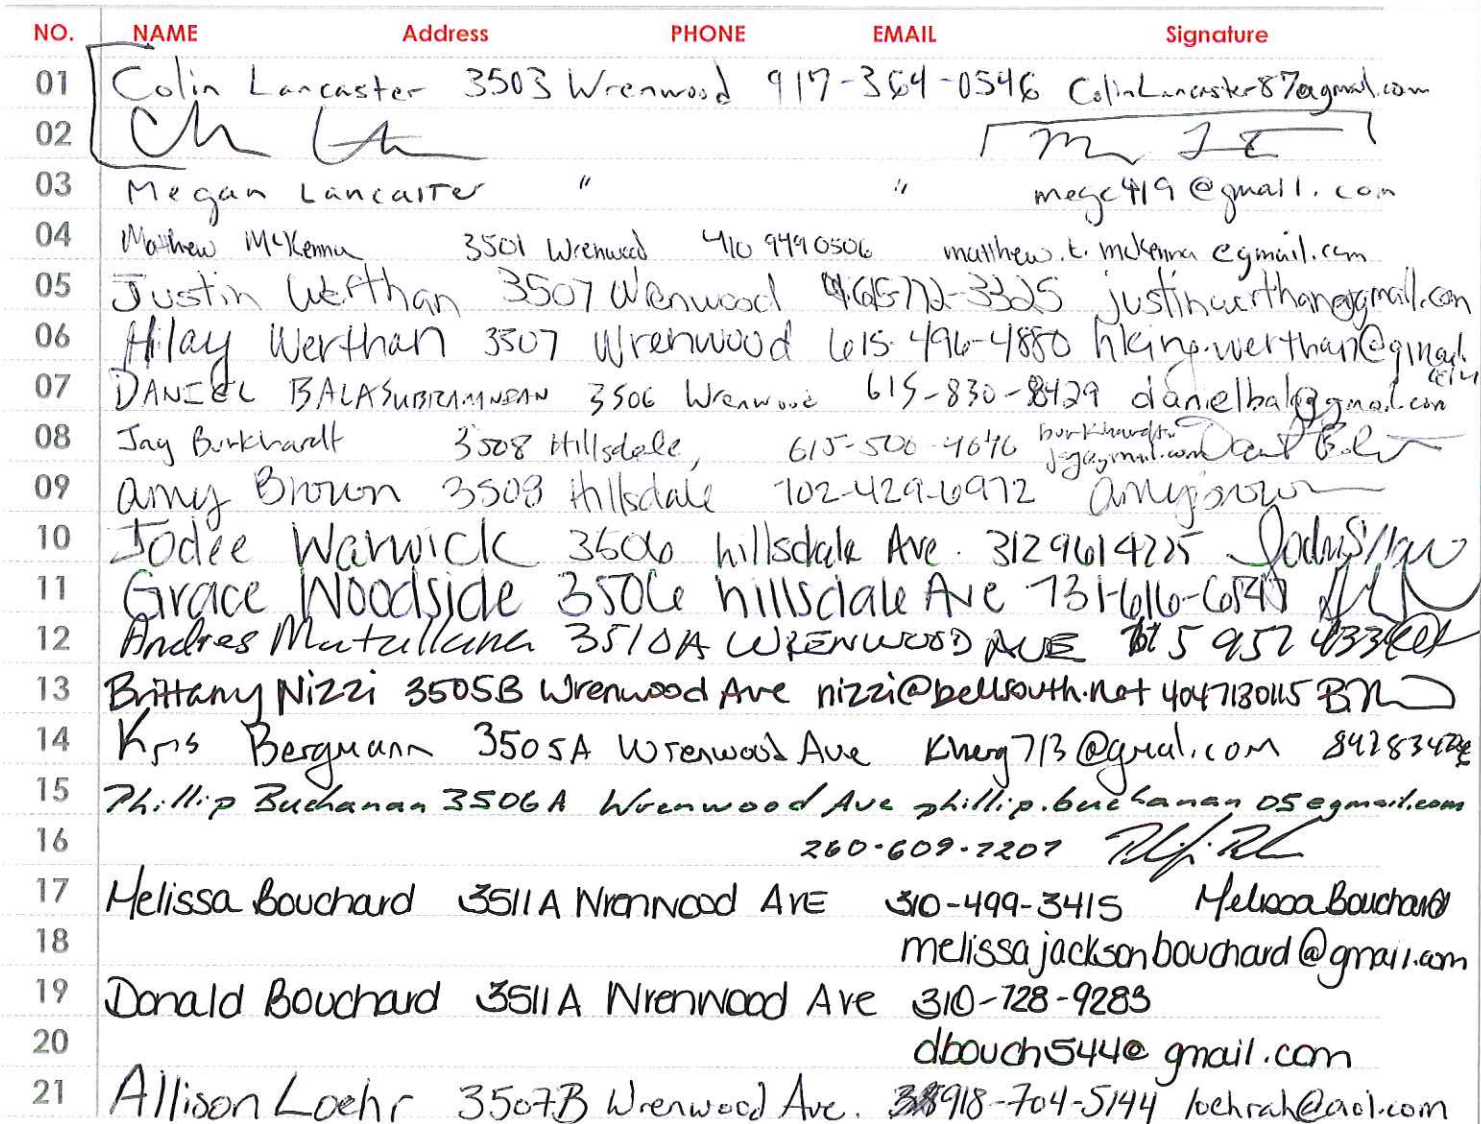 NO. NAME Address PHONE EMAIL Signature
01 Colin Lancaster 3503 Wrenwood 917-364-0546 ColinLancaster87@gmail.com
02
03 Megan Lancaster " " megc419@gmail.com
04 Matthew McKenna 3501 Wrenwood 410 949 0506 matthew.t.mckenna@gmail.com
05 Justin Werthan 3507 Wrenwood 615-772-3325 justinwerthan@gmail.com
06 Hilary Werthan 3507 Wrenwood 615-496-4880 hking.werthan@gmail.com
07 DANIEL 3506 Wrenwood 615-830-8429 danielbala@gmail.com
08 Jay Burkhardt 3508 Hillsdale, 615-500-4646
09 Amy Brown 3508 Hillsdale 702-429-6972 Amy Brown
10 Jodee Warwick 3506 hillsdale Ave. 3129614225
11 Grace Woodside 3506 hillsdale Ave
12 Andres Matallana 3510A WRENWOOD AVE
13 Brittany Nizzi 3505B Wrenwood Ave nizzi@bellsouth.net 4047130115
14 Kris Bergmann 3505A Wrenwood Ave
15 Phillip Buchanan 3506A Wrenwood Ave phillip.buchanan05@gmail.com
16 260-609-2207
17 Melissa Bouchard 3511A Wrenwood AVE 310-499-3415 Melissa Bouchard
18 melissajacksonbouchard@gmail.com
19 Donald Bouchard 3511A Wrenwood Ave 310-728-9283
20 dbouch544@gmail.com
21 Allison Loehr 3507B Wrenwood Ave. 918-704-5144 loehrah@aol.com